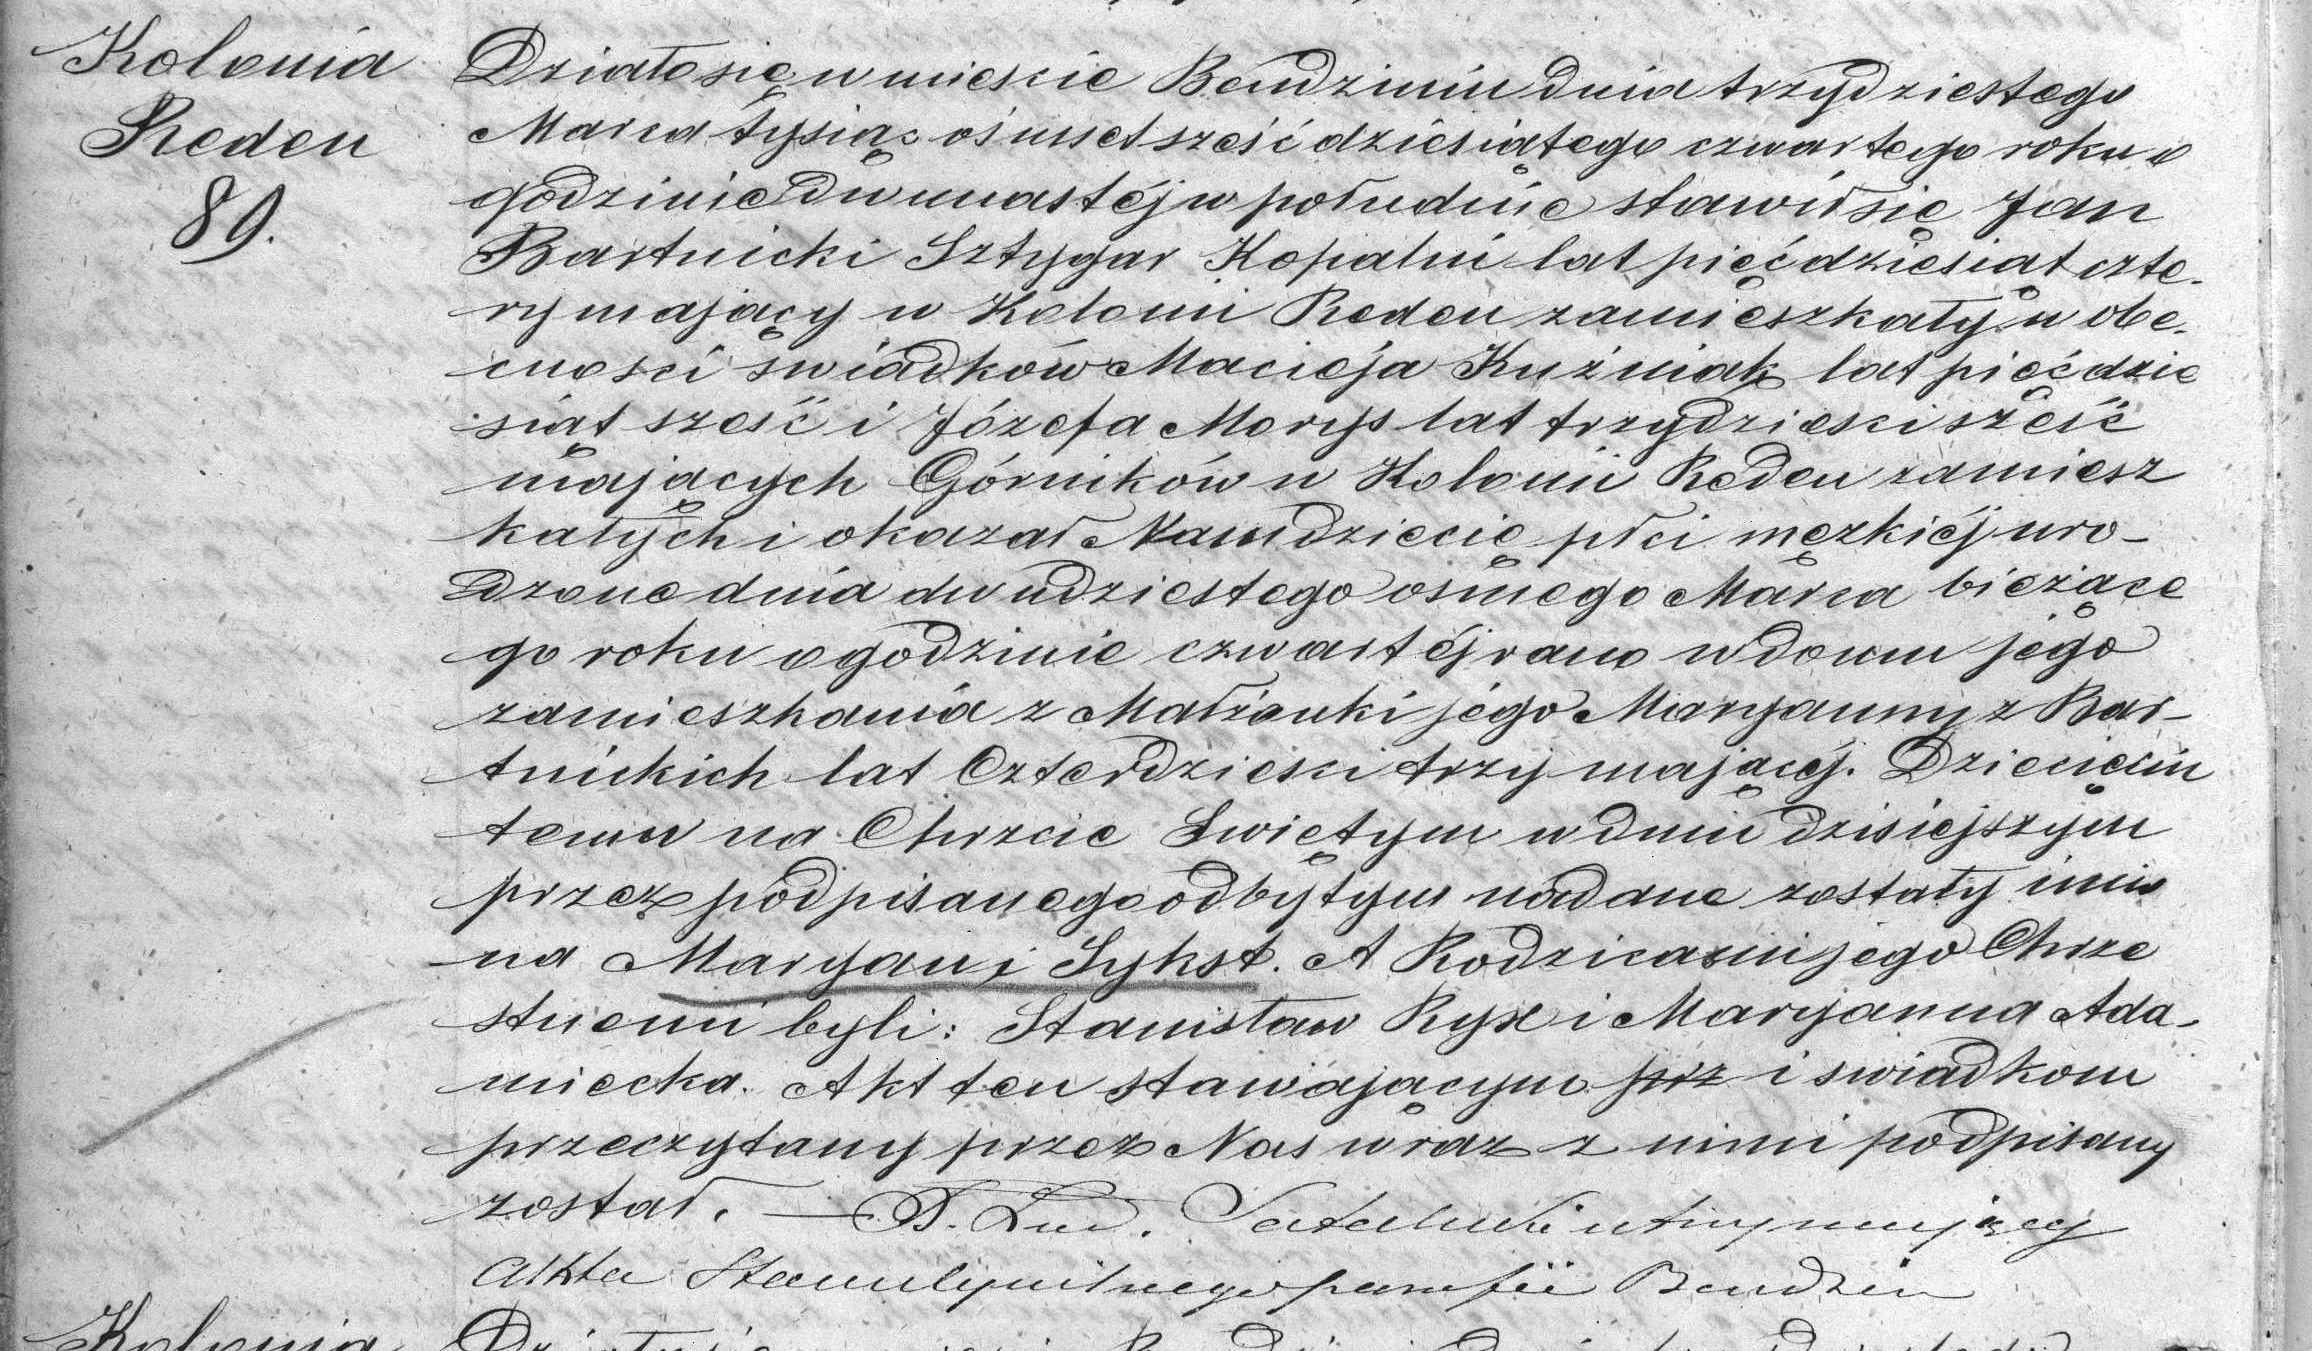 Kolonia
Reden
89.
Działo się w mieście Bendzinie dnia trzydziestego
Marca tysiąc ośmset sześćdziesiątego czwartego roku o
godzinie dwunastéj w południe stawił się Jan
Bartnicki Sztygar Kopalni lat pięćdziesiąt czte-
ry mający w Kolonii Reden zamieszkały w obe-
cności świadków Macieja Kuźniak lat pięćdzie
siąt sześć i Józefa Morys lat trzydzieści sześć
mających Górników w Kolonii Reden zamiesz
kałych i okazał Nam dziecię płci męzkiéj uro-
dzone dnia dwudziestego osmego Marca bieżące
go roku o godzinie czwartéj rano w domu jego
zamieszkania z Małżonki jego Maryanny z Bar-
tnickich lat Czterdzieści trzy mającéj. Dziecięciu
temu na Chrzcie Swiętym w dniu dzisiejszym
przez podpisanego odbytym nadane zostały imio
na Maryan i Sykst. A Rodzicami jego Chrze
stnemi byli: Stanisław Ryx i Maryanna Ada-
miecka. Akt ten stawającym prz i swiadkom
przeczytany przez Nas wraz z nimi podpisany
został. utrzymujący
Akta Stanu Cywilnego parafii Bendzin
Kolonia